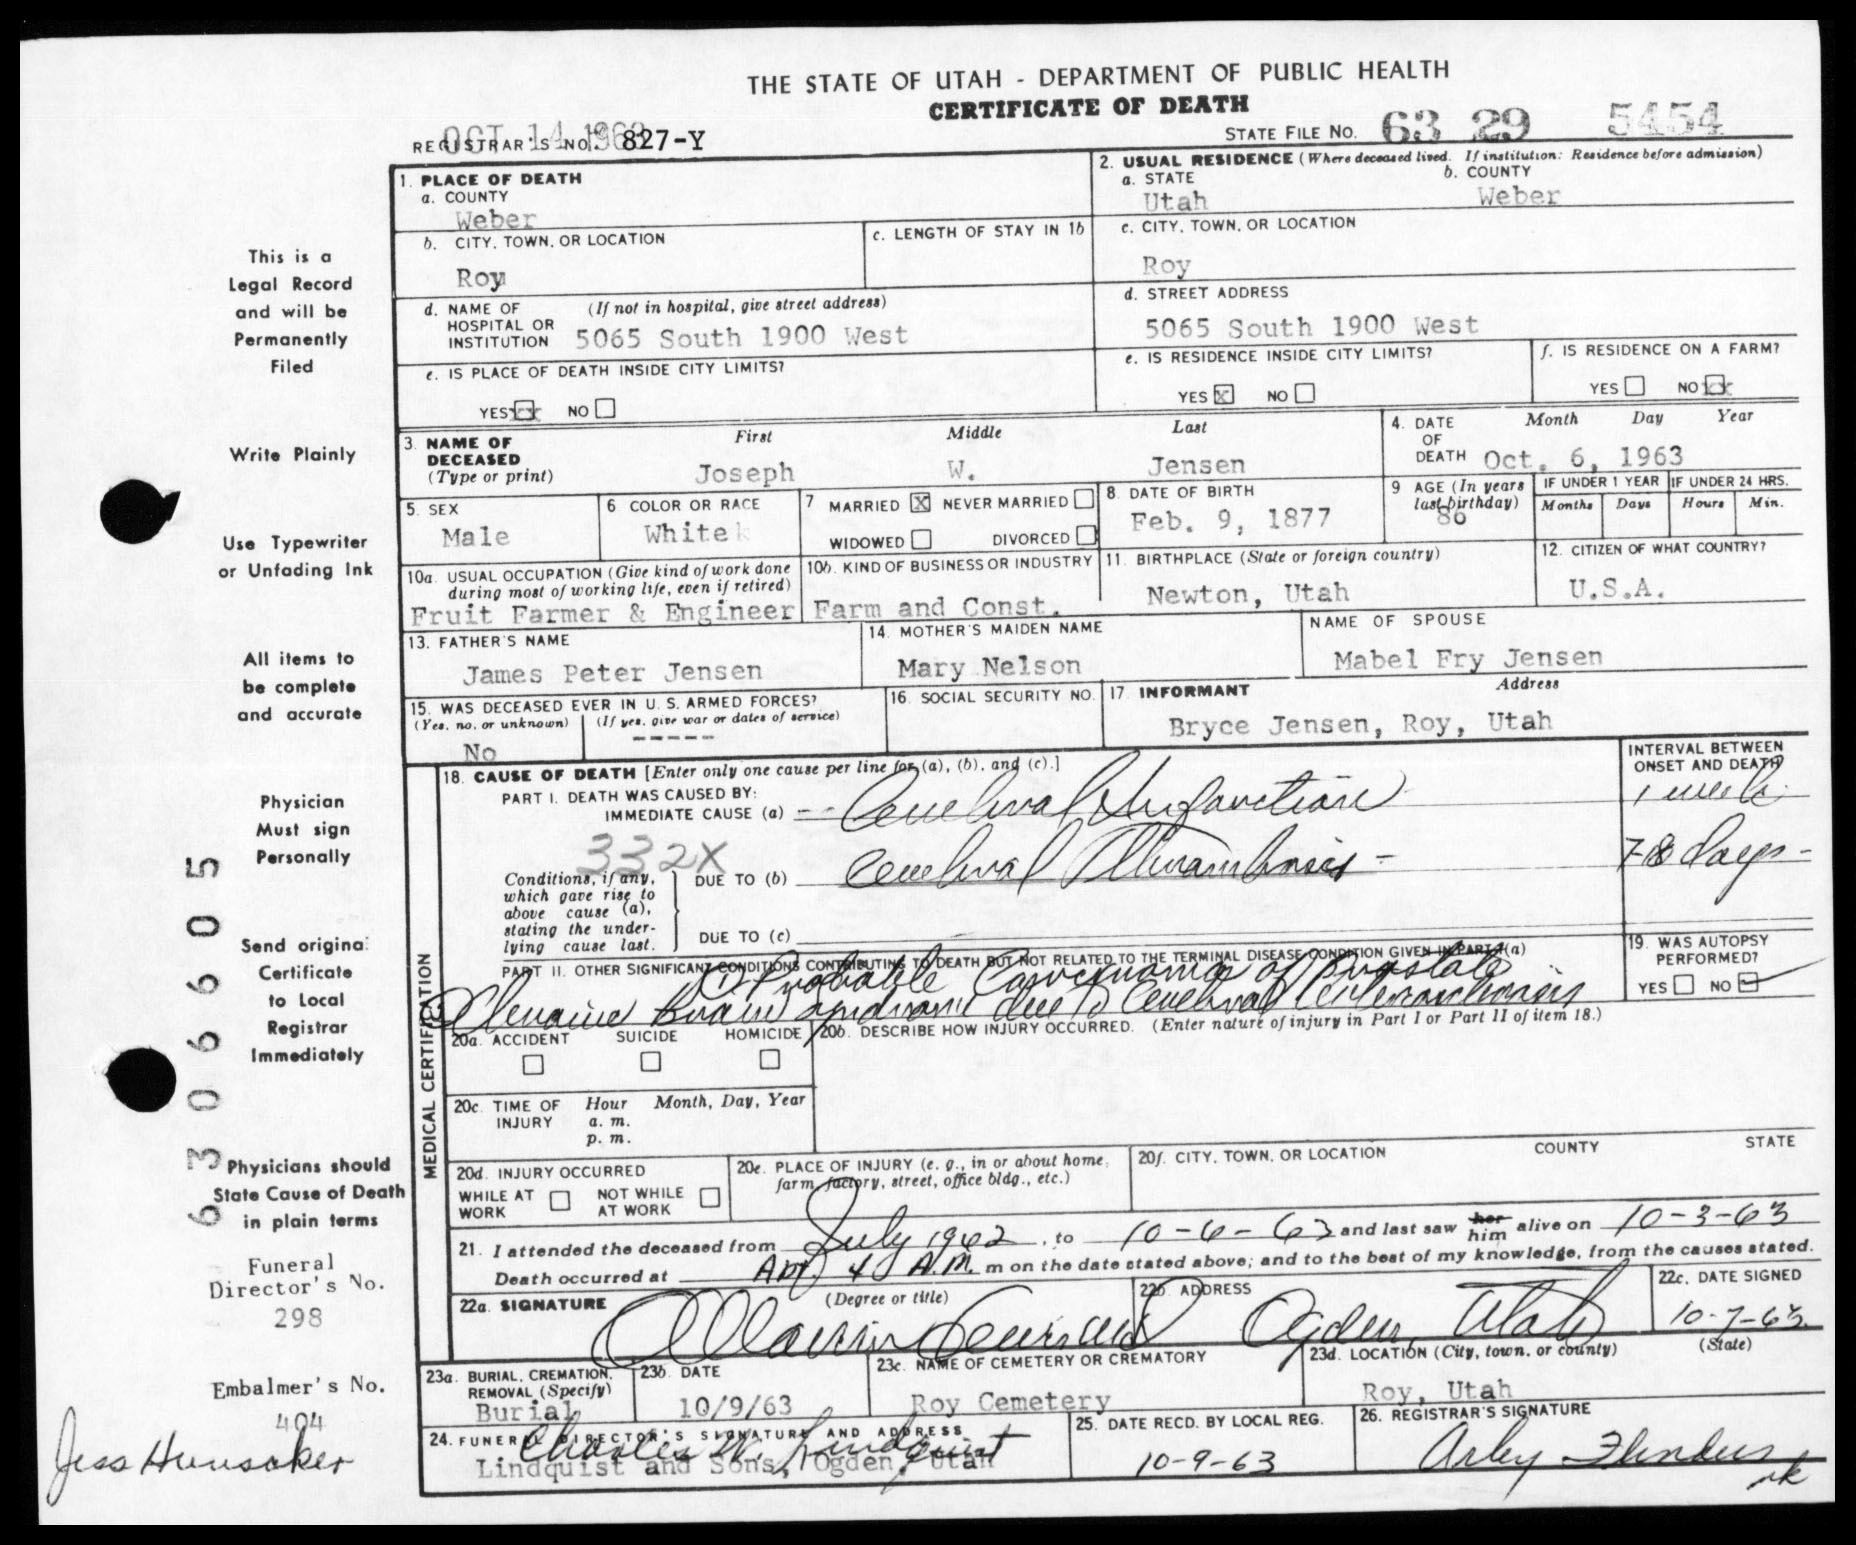 THE STATE OF UTAH - DEPARTMENT OF PUBLIC HEALTH
CERTIFICATE OF DEATH
REGISTRAR'S NO. 827-Y
OCT 14 1963
STATE FILE NO. 63 29 5454
1. PLACE OF DEATH
a. COUNTY
Weber
2. USUAL RESIDENCE (Where deceased lived. If institution: Residence before admission)
a. STATE b. COUNTY
Utah Weber
b. CITY, TOWN, OR LOCATION
Roy
c. LENGTH OF STAY IN 1b
c. CITY, TOWN, OR LOCATION
Roy
d. NAME OF HOSPITAL OR INSTITUTION (If not in hospital, give street address)
5065 South 1900 West
d. STREET ADDRESS
5065 South 1900 West
e. IS PLACE OF DEATH INSIDE CITY LIMITS?
YES xx NO
e. IS RESIDENCE INSIDE CITY LIMITS?
YES X NO
f. IS RESIDENCE ON A FARM?
YES NO xx
3. NAME OF DECEASED (Type or print)
First Middle Last
Joseph W. Jensen
4. DATE OF DEATH
Month Day Year
Oct. 6, 1963
5. SEX
Male
6 COLOR OR RACE
White
7 MARRIED X NEVER MARRIED
WIDOWED DIVORCED
8. DATE OF BIRTH
Feb. 9, 1877
9 AGE (In years last birthday)
86
IF UNDER 1 YEAR
Months Days
IF UNDER 24 HRS.
Hours Min.
10a. USUAL OCCUPATION (Give kind of work done during most of working life, even if retired)
Fruit Farmer & Engineer
10b. KIND OF BUSINESS OR INDUSTRY
Farm and Const.
11. BIRTHPLACE (State or foreign country)
Newton, Utah
12. CITIZEN OF WHAT COUNTRY?
U.S.A.
13. FATHER'S NAME
James Peter Jensen
14. MOTHER'S MAIDEN NAME
Mary Nelson
NAME OF SPOUSE
Mabel Fry Jensen
15. WAS DECEASED EVER IN U. S. ARMED FORCES?
(Yes, no, or unknown) (If yes, give war or dates of service)
No -----
16. SOCIAL SECURITY NO.
17. INFORMANT Address
Bryce Jensen, Roy, Utah
MEDICAL CERTIFICATION
18. CAUSE OF DEATH [Enter only one cause per line for (a), (b), and (c).]
INTERVAL BETWEEN ONSET AND DEATH
PART I. DEATH WAS CAUSED BY:
IMMEDIATE CAUSE (a) -- Cerebral Infarction
1 week
332X
Conditions, if any, which gave rise to above cause (a), stating the underlying cause last.
DUE TO (b) Cerebral Thrombosis -
7-8 days -
DUE TO (c)
PART II. OTHER SIGNIFICANT CONDITIONS CONTRIBUTING TO DEATH BUT NOT RELATED TO THE TERMINAL DISEASE CONDITION GIVEN IN PART I (a)
① Probable Carcinoma of prostate
② Chronic Brain syndrome due to Cerebral Arteriosclerosis
19. WAS AUTOPSY PERFORMED?
YES NO
20a. ACCIDENT SUICIDE HOMICIDE
20b. DESCRIBE HOW INJURY OCCURRED. (Enter nature of injury in Part I or Part II of item 18.)
20c. TIME OF INJURY Hour Month, Day, Year
a. m.
p. m.
20d. INJURY OCCURRED
WHILE AT WORK NOT WHILE AT WORK
20e. PLACE OF INJURY (e. g., in or about home, farm, factory, street, office bldg., etc.)
20f. CITY, TOWN, OR LOCATION COUNTY STATE
21. I attended the deceased from July 1962, to 10-6-63 and last saw her him alive on 10-3-63
Death occurred at 4 A.M. m on the date stated above; and to the best of my knowledge, from the causes stated.
22a. SIGNATURE (Degree or title)
22b. ADDRESS
Ogden, Utah
22c. DATE SIGNED
10-7-63
23a. BURIAL, CREMATION, REMOVAL (Specify)
Burial
23b. DATE
10/9/63
23c. NAME OF CEMETERY OR CREMATORY
Roy Cemetery
23d. LOCATION (City, town, or county) (State)
Roy, Utah
24. FUNERAL DIRECTOR'S SIGNATURE AND ADDRESS
Charles W. Lindquist
Lindquist and Sons, Ogden, Utah
25. DATE RECD. BY LOCAL REG.
10-9-63
26. REGISTRAR'S SIGNATURE
Arley Flinders
rk
This is a
Legal Record
and will be
Permanently
Filed
Write Plainly
Use Typewriter
or Unfading Ink
All items to
be complete
and accurate
Physician
Must sign
Personally
Send original
Certificate
to Local
Registrar
Immediately
Physicians should
State Cause of Death
in plain terms
Funeral
Director's No.
298
Embalmer's No.
404
Jess Hunsaker
6306605